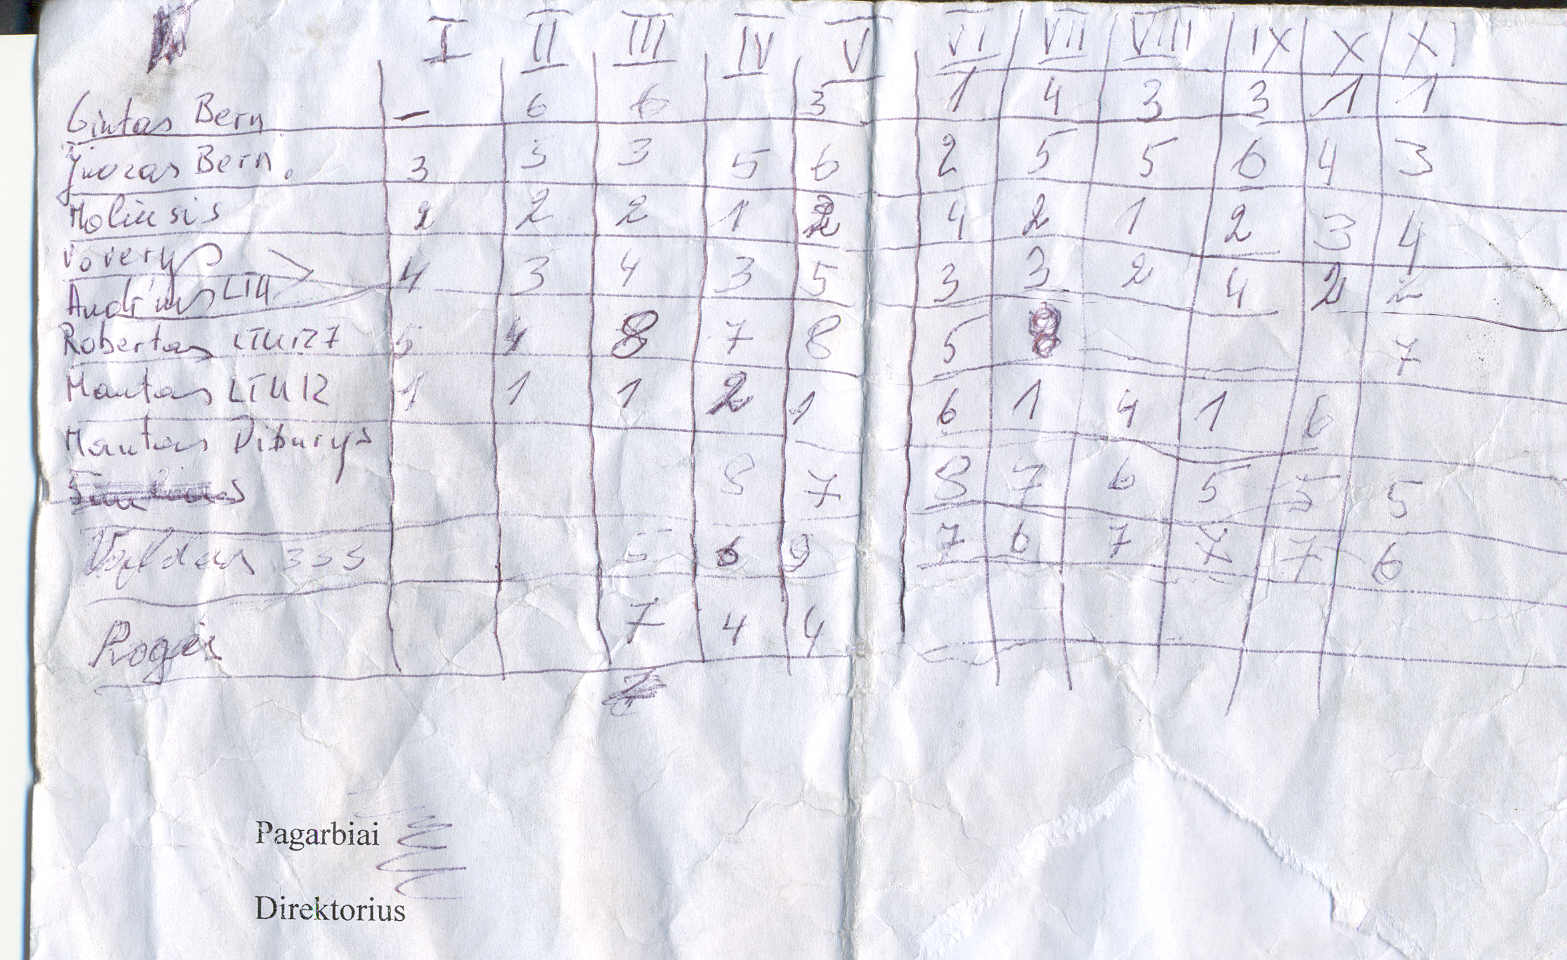 I II III IV V VI VII VIII IX X XI
Gintas Bern. - 6 6 3 1 4 3 3 1 1
Juozas Bern. 3 5 3 5 6 2 5 5 6 4 3
2 2 2 1 2 4 2 1 2 3 4
Voverys
Andrius LTU 4 3 4 3 5 3 3 2 4 2 2
Robertas LTU127 5 4 8 7 8 5 8 7
Mantas LTU12 1 1 1 2 1 6 1 4 1 6
Mantas Diburys
8 7 8 7 6 5 5 5
Valdas 333 5 6 9 7 6 7 7 7 6
7 4 4
Pagarbiai
Direktorius